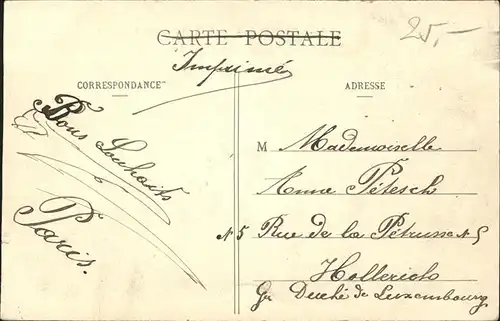 25,-
CARTE POSTALE
Imprimé
CORRESPONDANCE
ADRESSE
Bons Souhaits
Paris.
M Mademoiselle
Anna Pétesch
N 5 Rue de la Pétrusse N 5
Hollerich
Gr Duché de Luxembourg